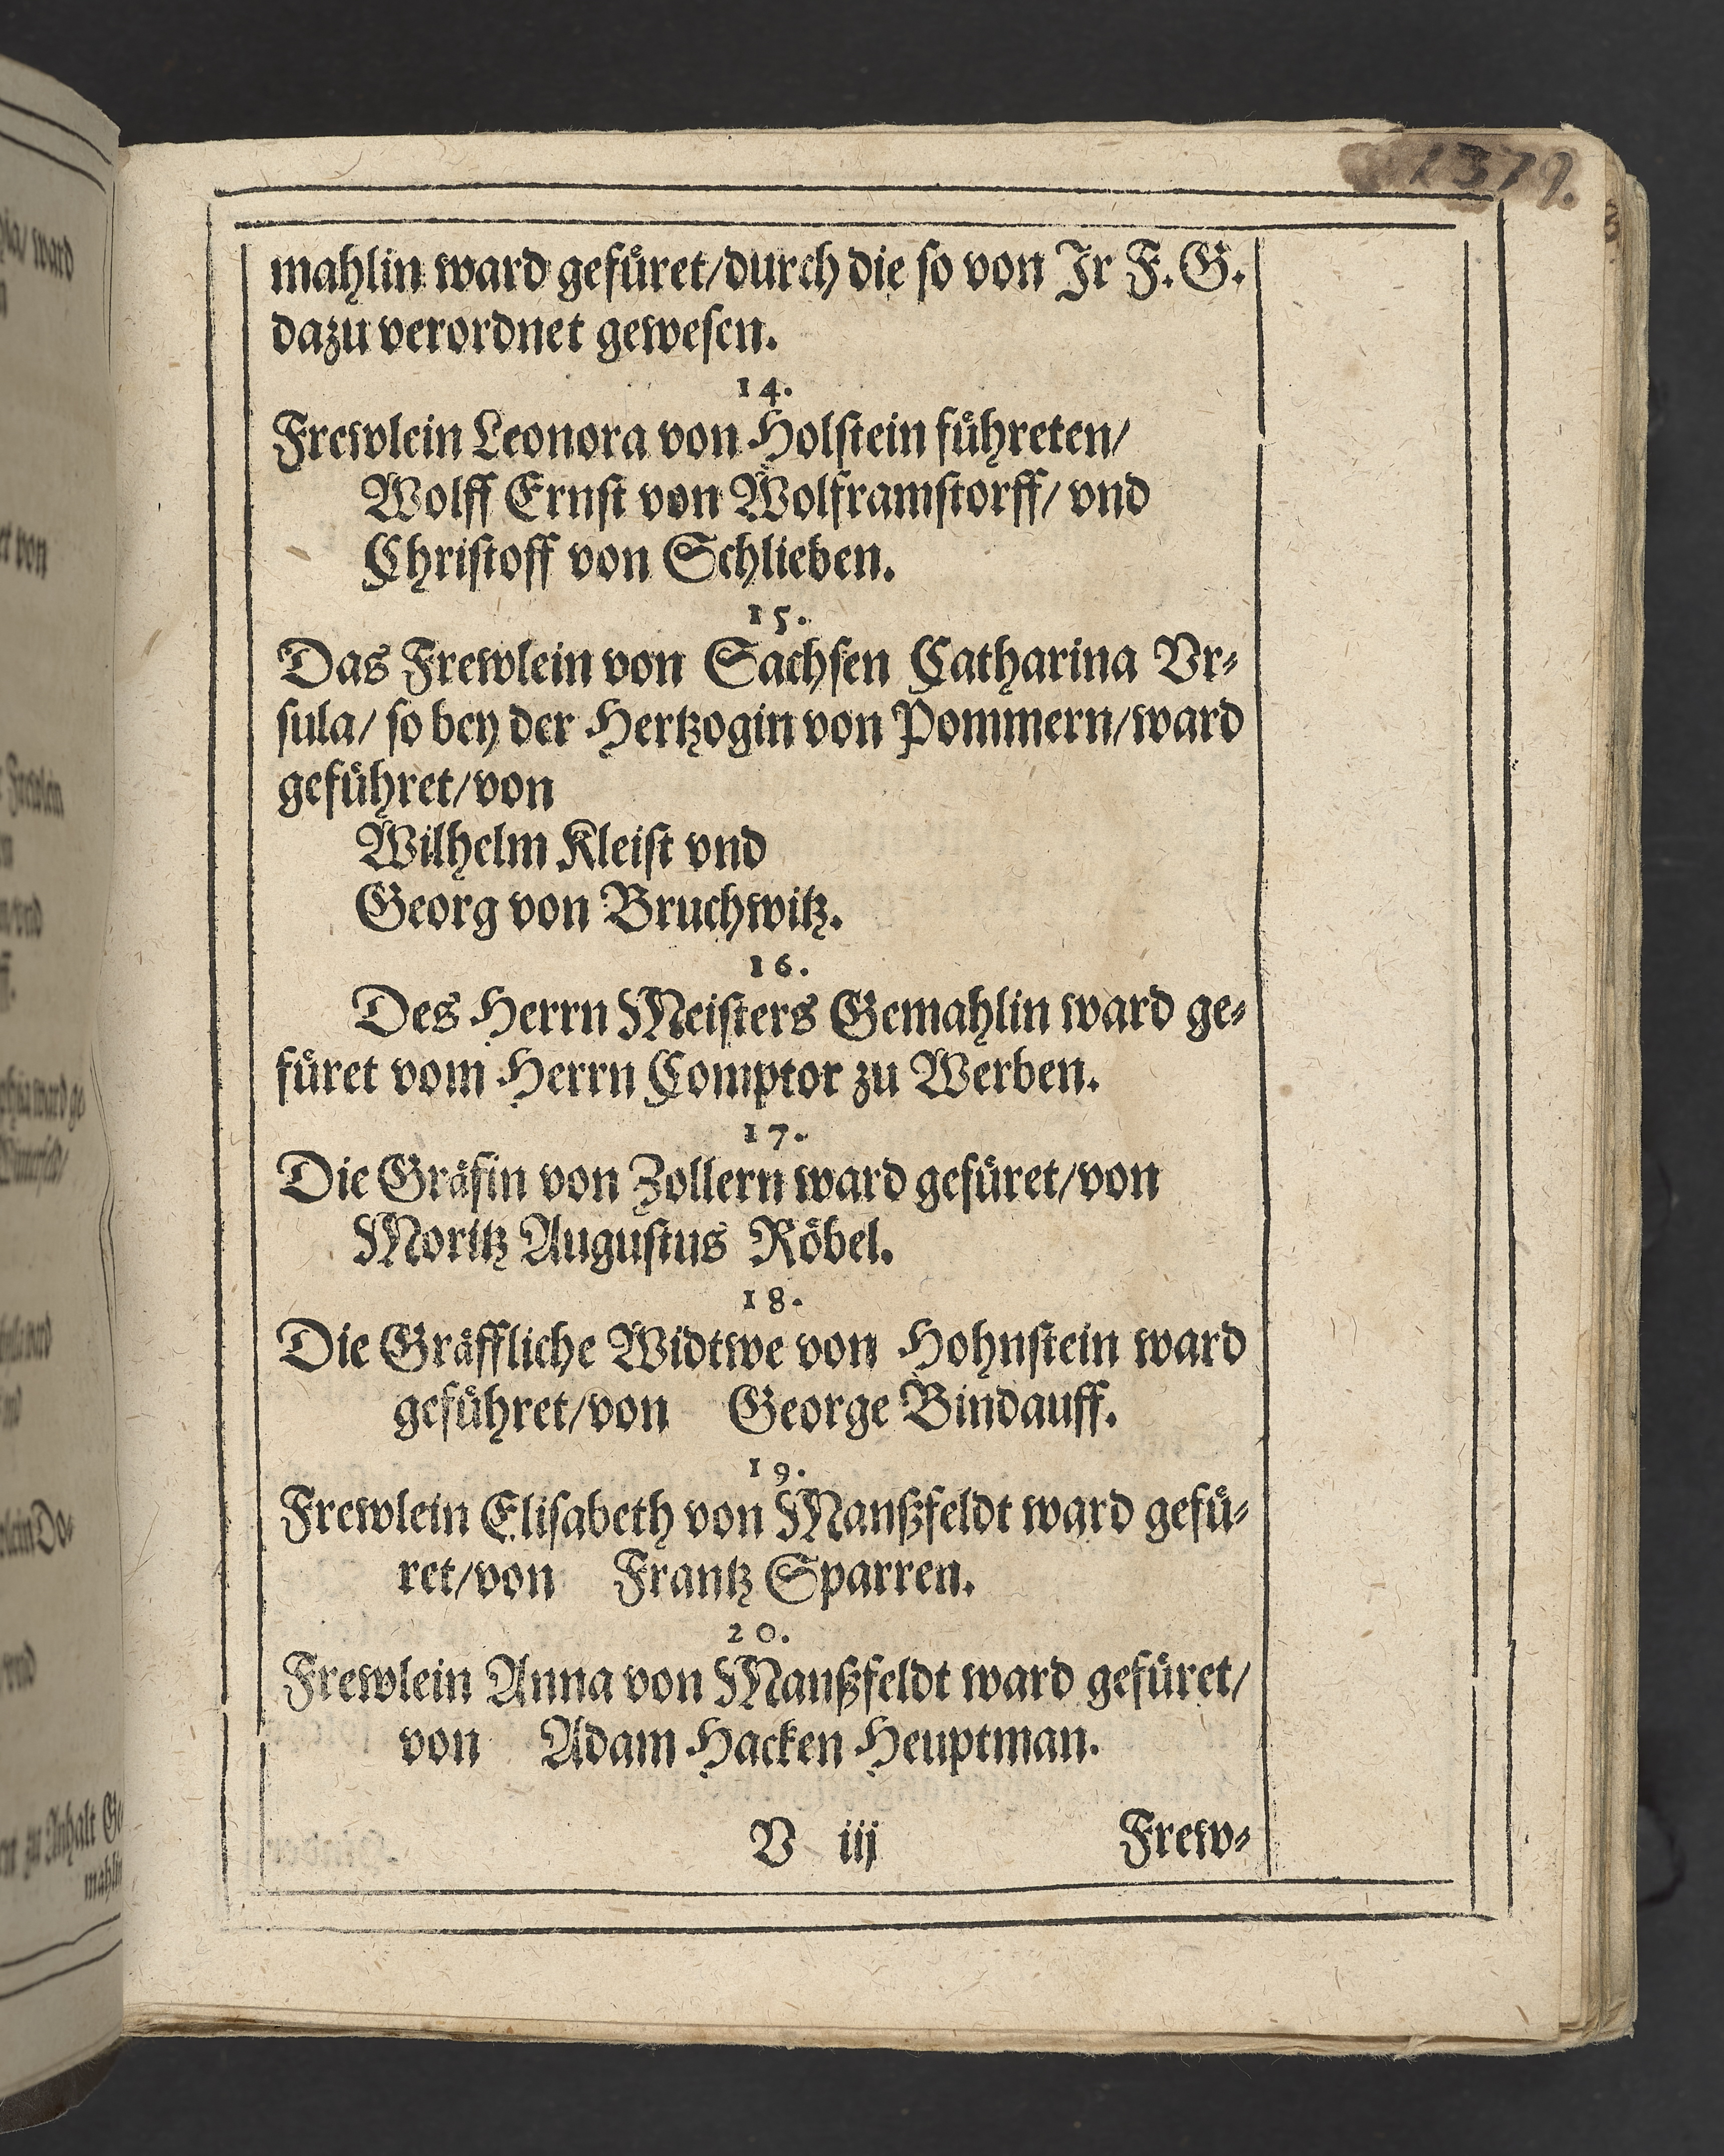 1379.
mahlin ward gefüret/durch die so von Jr F. G.
dazu verordnet gewesen.
14.
Frewlein Leonora von Holstein führeten/
Wolff Ernst von Wolframstorff/ vnd
Christoff von Schlieben.
15.
Das Frewlein von Sachsen Catharina Vr-
sula/ so bey der Hertzogin von Pommern/ward
geführet/von
Wilhelm Kleist vnd
Georg von Bruchwitz.
16.
Des Herrn Meisters Gemahlin ward ge-
füret vom Herrn Comptor zu Werben.
17.
Die Gräfin von Zollern ward gefüret/von
Moritz Augustus Röbel.
18.
Die Gräffliche Widtwe von Hohnstein ward
geführet/von George Bindauff.
19.
Frewlein Elisabeth von Manßfeldt ward gefü-
ret/von Frantz Sparren.
20.
Frewlein Anna von Manßfeldt ward gefüret/
von Adam Hacken Heuptman.
V iij Frew-